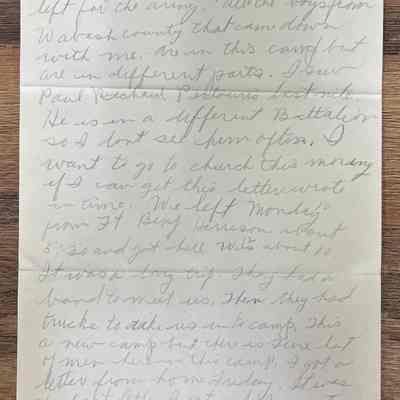 left for the army. All the boys from
Wabash county that came down
with me. are in this camp but
are in different parts. I saw
Paul last nite.
He is in a different Battalion
so I dont see him often. I
want to go to church this morning
if I can get this letter wrote
in time. We left Monday
from Ft Benj Harrison about
5:30 and got here about 10
It was a long trip They had a
band to meet us. Then they had
trucks to take us into camp. This
a new camp but there is sure lot
of men here in this camp. I got a
letter from home Friday. It was